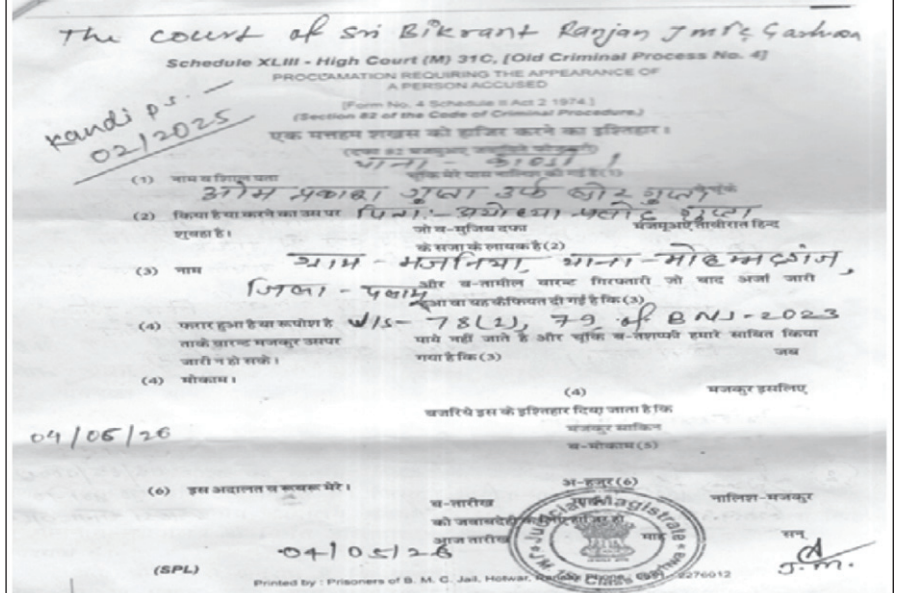 The court of Sri Bikrant Ranjan JMFC Garhwa
Schedule XLIII - High Court (M) 31C, [Old Criminal Process No. 4]
PROCLAMATION REQUIRING THE APPEARANCE OF
A PERSON ACCUSED
[Form No. 4 Schedule II Act 2 1974.]
(Section 82 of the Code of Criminal Procedure.)
Kandi P.S. —
02/2025
एक मत्तहम शख्स को हाजिर करने का इश्तिहार।
(दफा 82 मजमुअए जवाबिते फौजदारी)
थाना - काण्डी
(1) नाम व
चूंकि मेरे पास नालिश की गई है कि(1)
ओम प्रकाश गुप्ता उर्फ गुप्ता
(2) किया है या करने का उस पर पिता:- अयोध्या प्रसाद गुप्ता
शुबहा है।
जो ब-मुजिब दफा
मजमुअए ताबीरात हिन्द
के सजा के लायक है(2)
(3) नाम
ग्राम - मझनिया, थाना - मोहम्मदगंज,
और ब-तामील वारन्ट गिरफ्तारी जो बाद अर्जा जारी
जिला - पलामू
हुआ था यह कैफियत दी गई है कि(3)
(4) फरार हुआ है या रूपोश है U/S- 78(2), 79 of BNS-2023
ताके वारन्ट मजकुर उसपर
पाये नहीं जाते है और चूंकि ब-तशफ्फी हमारे साबित किया
जारी न हो सके।
गया है कि(3)
जब
(4) मोकाम।
(4)
मजकुर इसलिए
बजरिये इस के इश्तिहार दिया जाता है कि
मजकुर साकिन
04/05/26
ब-मोकाम(5)
(6) इस अदालत व रूबरू मेरे।
अ-हजुर(6)
ब-तारीख
नालिश-मजकुर
को जवाबदेही के लिए हाजिर हो
आज तारीख
माह
सन्
04/05/26
Judicial Magistrate
J.M. 1st Class Garhwa
J.M.
(SPL)
Printed by : Prisoners of B. M. C. Jail, Hotwar, Ranchi Phone 2276012